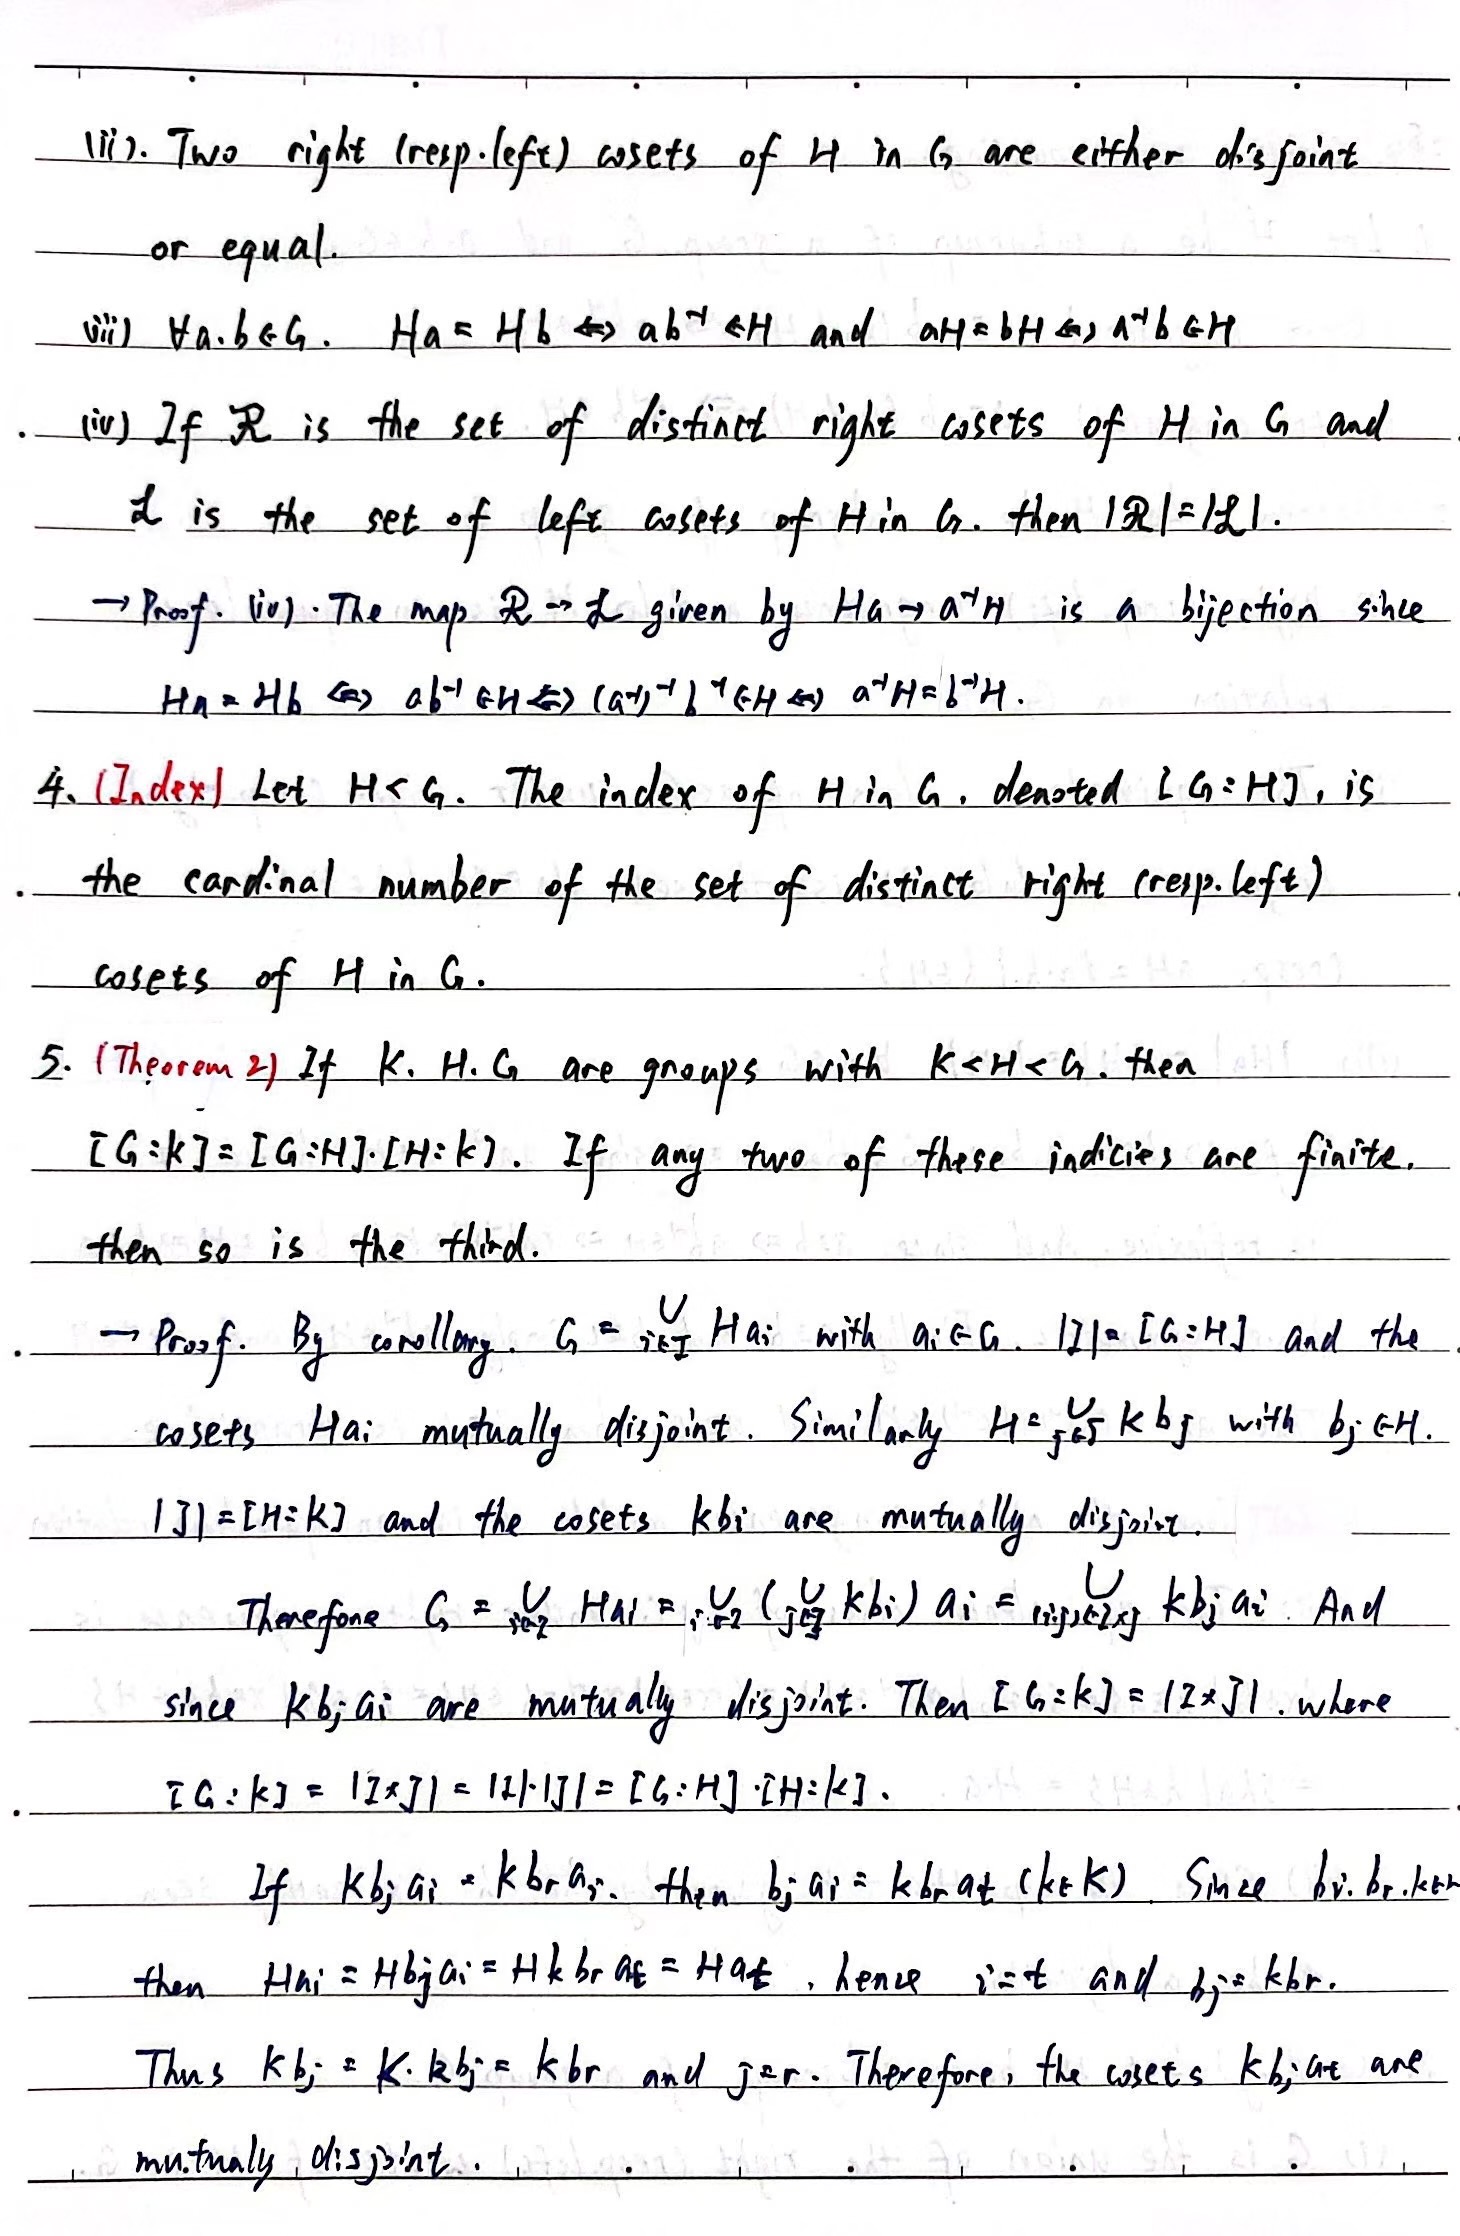 (ii). Two right (resp. left) cosets of H in G are either disjoint
or equal.
(iii) ∀a.b∈G. Ha = Hb ⇔ ab⁻¹ ∈H and aH = bH ⇔ a⁻¹b ∈H
(iv) If ℛ is the set of distinct right cosets of H in G and
ℒ is the set of left cosets of H in G. then |ℛ|=|ℒ|.
→ Proof. (iv). The map ℛ → ℒ given by Ha → a⁻¹H is a bijection since
Ha = Hb ⇔ ab⁻¹ ∈H ⇔ (a⁻¹)⁻¹ b⁻¹ ∈H ⇔ a⁻¹H = b⁻¹H.
4. (Index) Let H < G. The index of H in G, denoted [G:H], is
the cardinal number of the set of distinct right (resp. left)
cosets of H in G.
5. (Theorem 2) If K. H. G are groups with K<H<G. then
[G:K] = [G:H]·[H:K]. If any two of these indicies are finite.
then so is the third.
→ Proof. By corollary. G = ∪ i∈I Hai with ai∈G. |I| = [G:H] and the
cosets Hai mutually disjoint. Similarly H = ∪ j∈J Kbj with bj∈H.
|J| = [H:K] and the cosets Kbi are mutually disjoint.
Therefore G = ∪ i∈I Hai = ∪ i∈I (∪ j∈J Kbi) ai = ∪ (i,j)∈I×J Kbj ai. And
since Kbj ai are mutually disjoint. Then [G:K] = |I×J|. where
[G:K] = |I×J| = |I|·|J| = [G:H]·[H:K].
If Kbj ai = Kbr ai. then bj ai = kbr at (k∈K). Since bi. br. k∈H
then Hai = Hbj ai = Hkbr at = Hat, hence i=t and bj = kbr.
Thus Kbj = K·kbj = Kbr and j=r. Therefore, the cosets Kbj at are
mutualy disjoint.